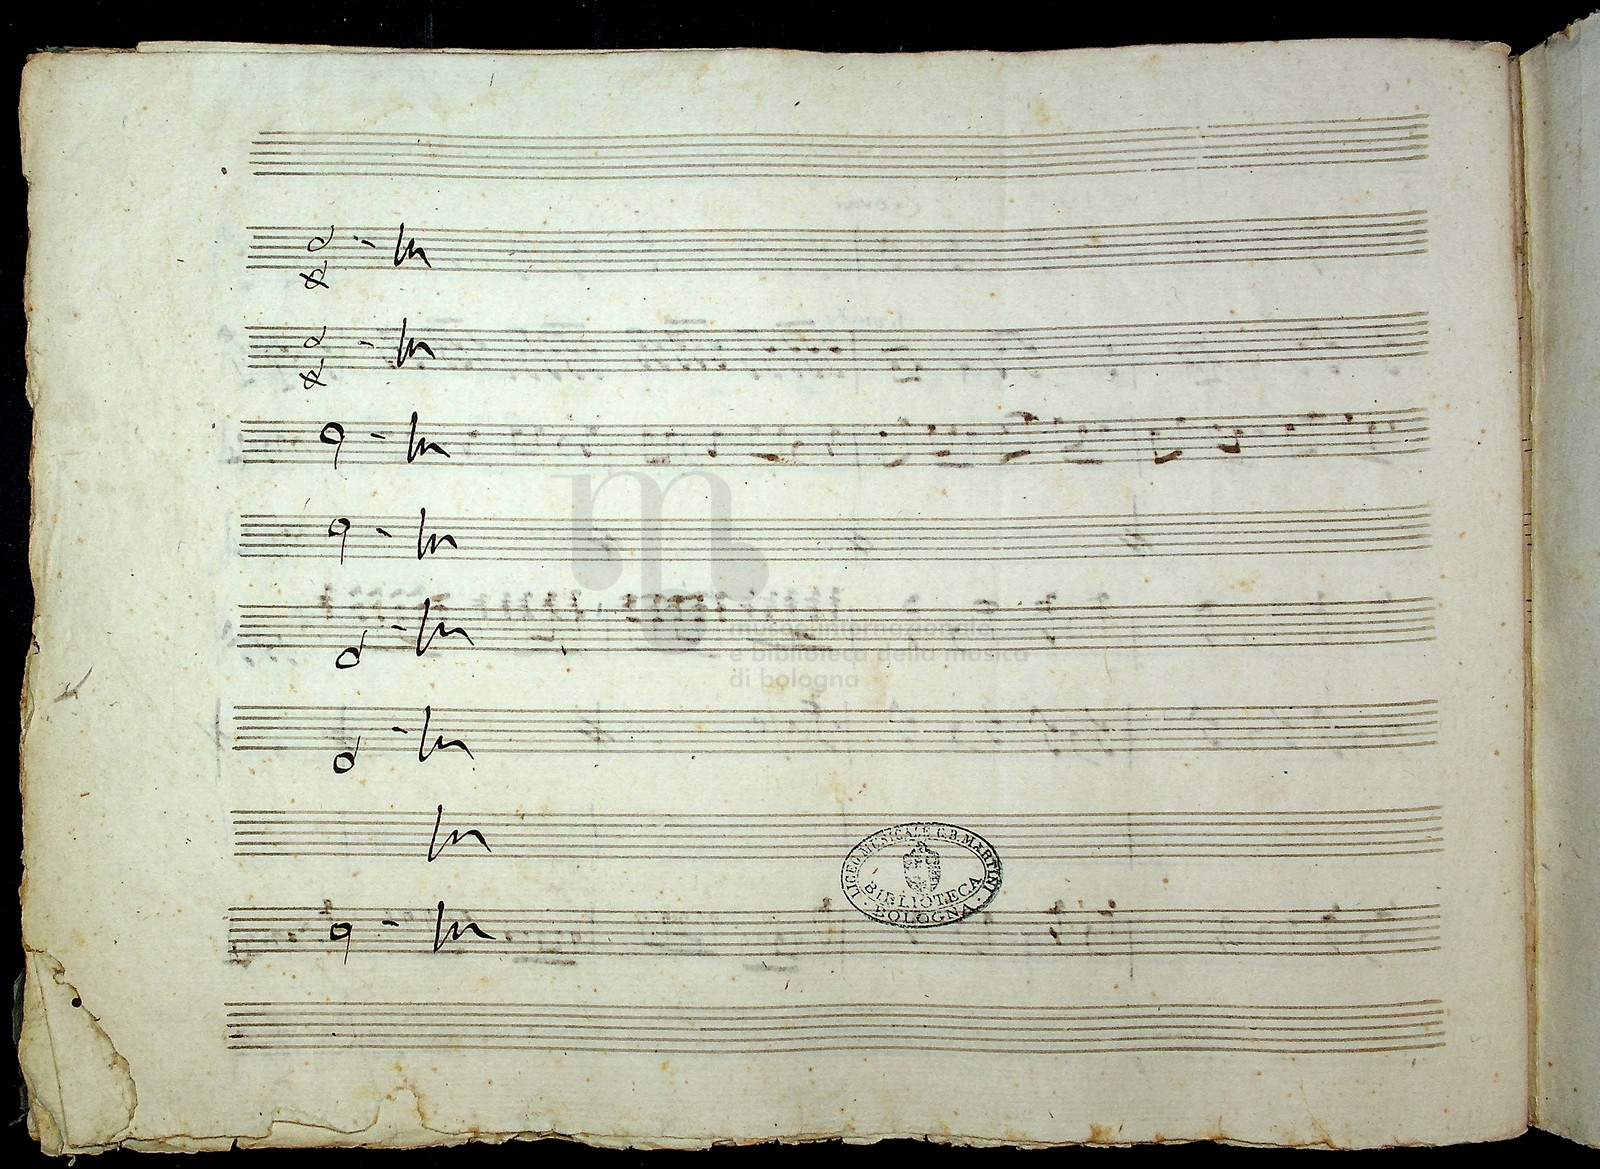 museo internazionale
e biblioteca della musica
di bologna
LICEO MUSICALE G.B. MARTINI
BIBLIOTECA
· BOLOGNA ·